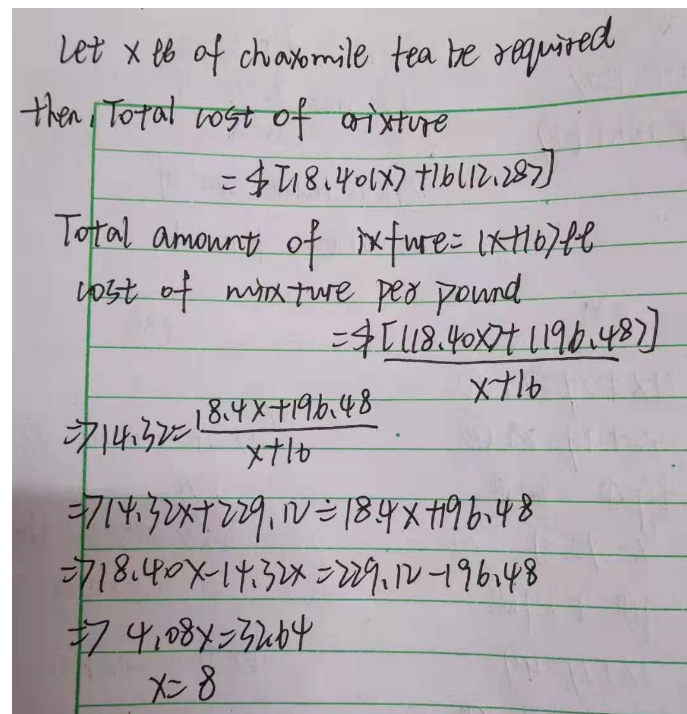 Let x lb of chaxomile tea be required
then, Total cost of mixture
= $[18.40(x) + 16(12.28)]
Total amount of ixture = (x+16)lb
cost of mixture per pound
= $[(18.40x) + (196.48)]
x+16
=> 14.32 = 18.4x+196.48
x+16
=> 14.32x+229.12 = 18.4x+196.48
=> 18.40x-14.32x = 229.12-196.48
=> 4.08x = 32.64
x = 8